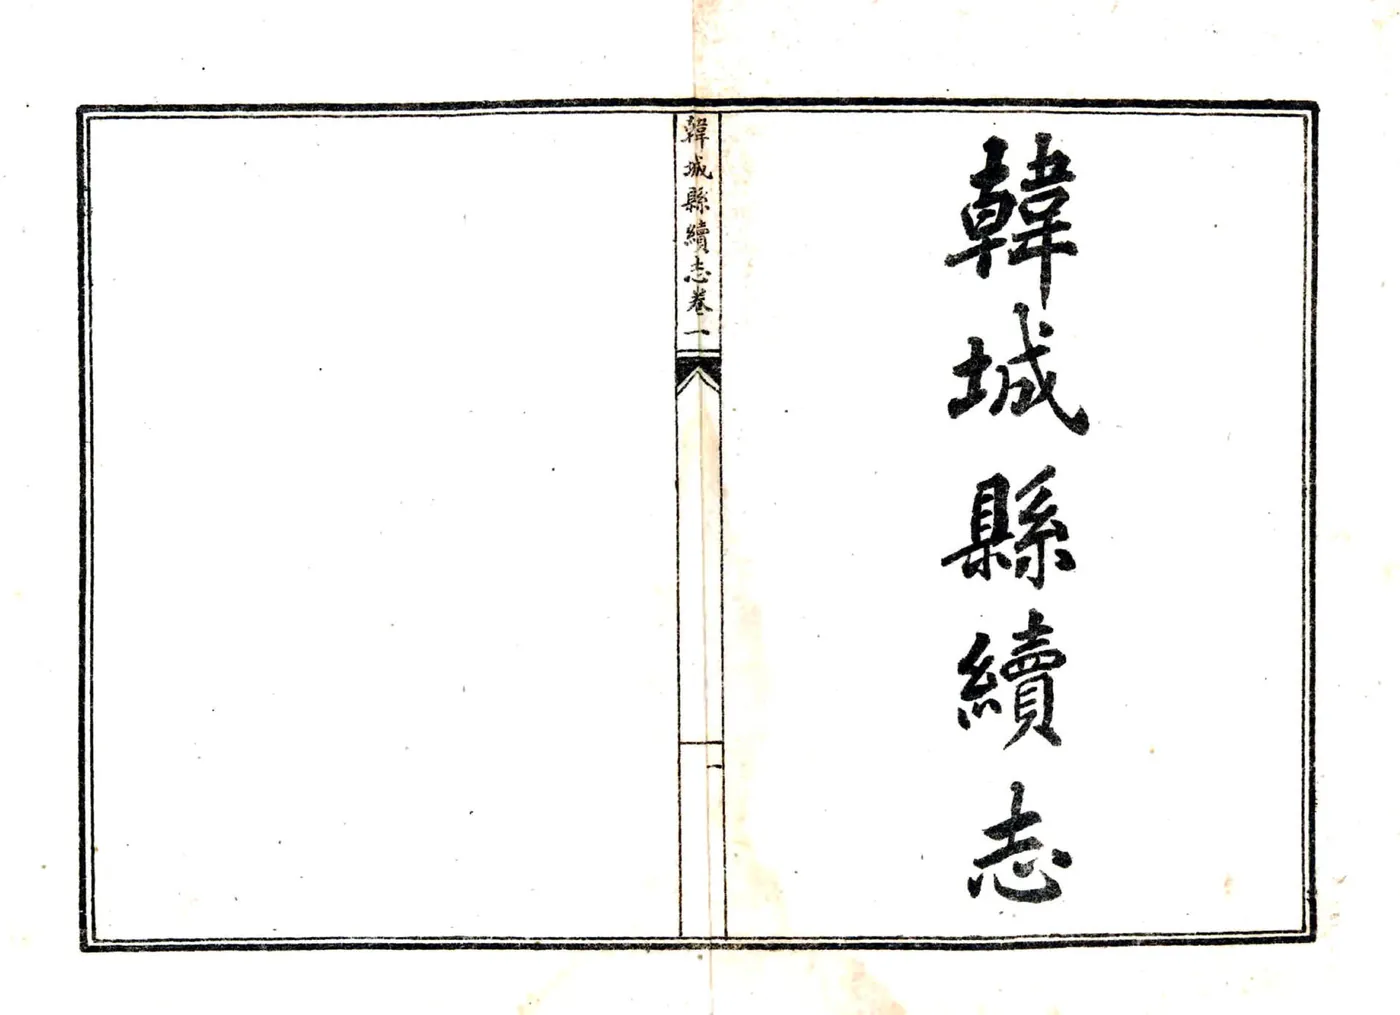 韓城縣續志
韓城縣續志卷一
一